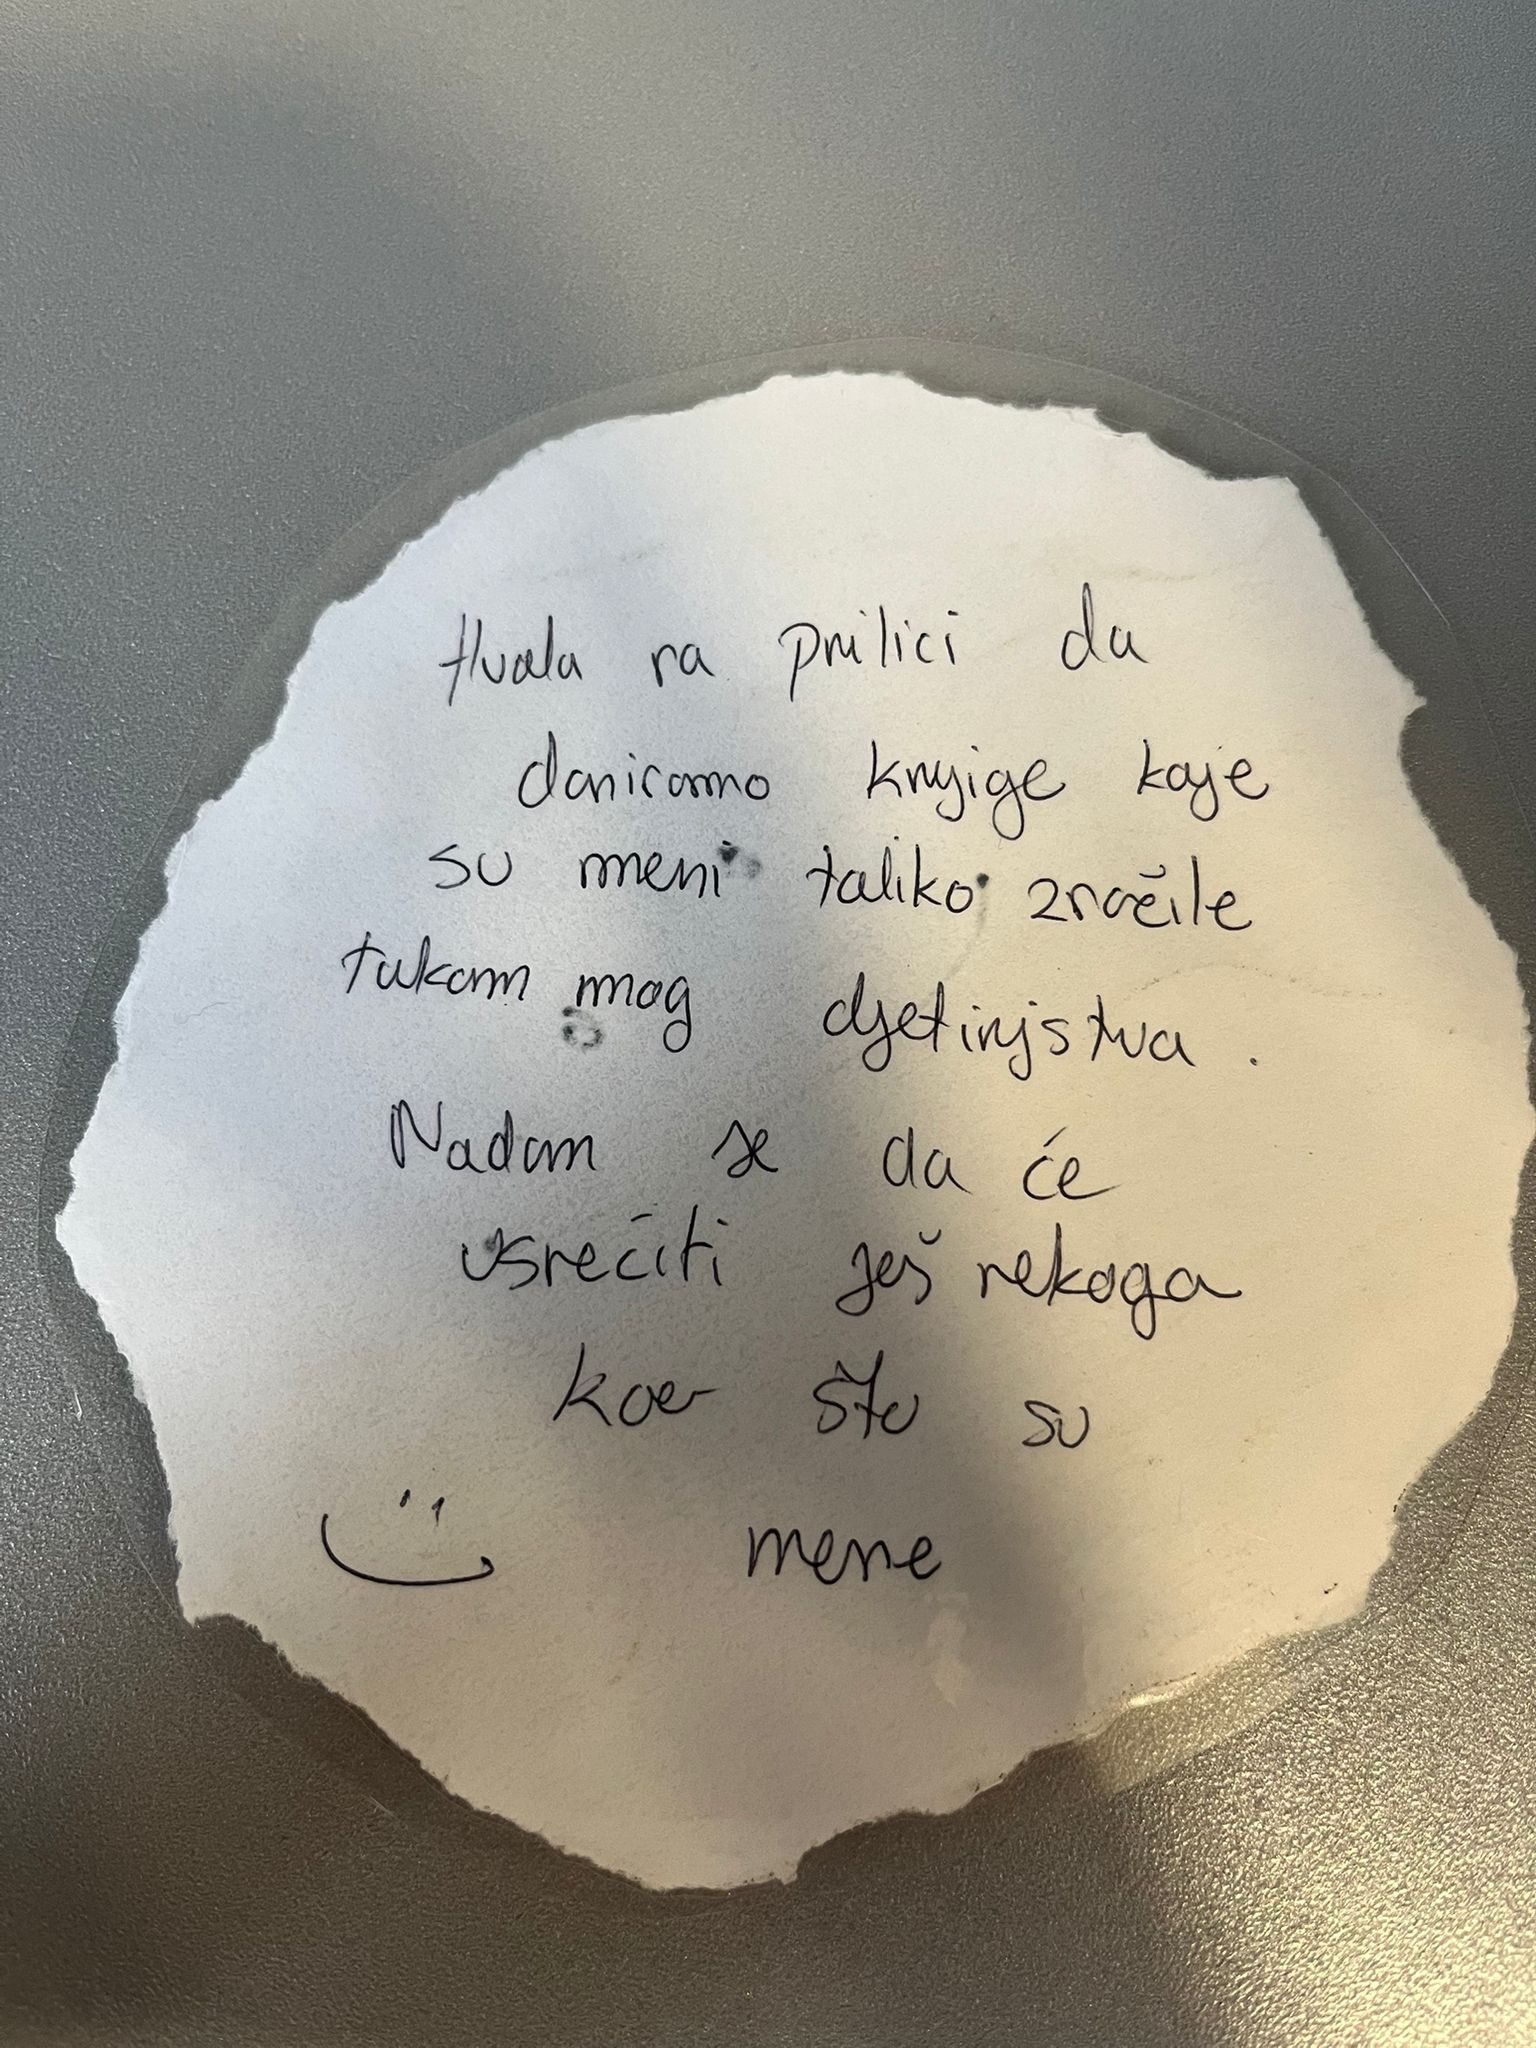 Hvala na prilici da
doniramo knjige koje
su meni toliko značile
tokom mog djetinjstva.
Nadam se da će
usrećiti još nekoga
kao što su
mene